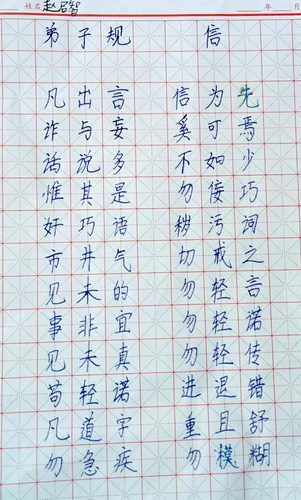 姓名 年 月
弟子规 信
凡出言 信为先
诈与妄 奚可焉
话说多 不如少
惟其是 勿佞巧
奸巧语 秽污词
市井气 切戒之
见未的 勿轻言
事非宜 勿轻诺
见未真 勿轻传
苟轻诺 进退错
凡道字 重且舒
勿急疾 勿模糊